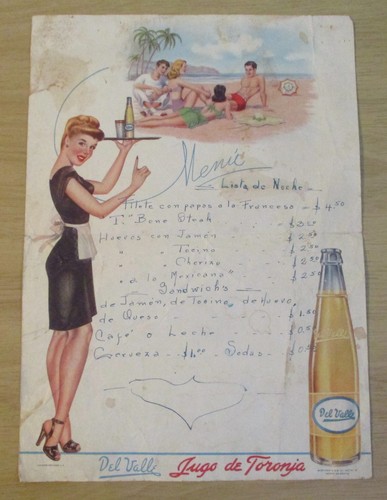 Menú
Lista de Noche
Filete con papas a la Francesa - $4.50
T. Bone Steak - - $3.50
Huevos con Jamón $2.50
" " Tocino $2.50
" " Chorizo $2.50
" a la Mexicana" $2.50
Sandwichs
de Jamón, de Tocino, de Huevo,
de Queso - - $1.50
Café o Leche $0.50
Cerveza - $1.00 Sodas - $0.50
Del Valle
Del Valle Jugo de Toronja